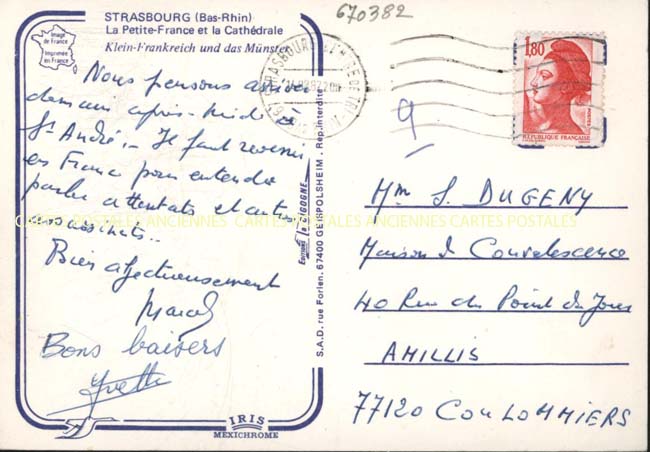 670382
STRASBOURG (Bas-Rhin)
La Petite-France et la Cathédrale
Klein-Frankreich und das Münster
Image
de France
Imprimée
en France
Nous pensons arriver
demain après-midi à
St André. Il faut revenir
en France pour entendre
parler attentats et autres
assassinats..
Bien affectueusement
Marcel
Bons baisers
Yvette
IRIS
MEXICHROME
S.A.D. rue Forlen. 67400 GEISPOLSHEIM - Rep. interdite
Editions la CIGOGNE
STRASBOURG
1,80
REPUBLIQUE FRANÇAISE
9
Mme S. DUGENY
Maison de Convalescence
40 Rue du Point du Jour
AMILLIS
77120 COULOMMIERS
CARTES POSTALES ANCIENNES CARTES POSTALES ANCIENNES CARTES POSTALES